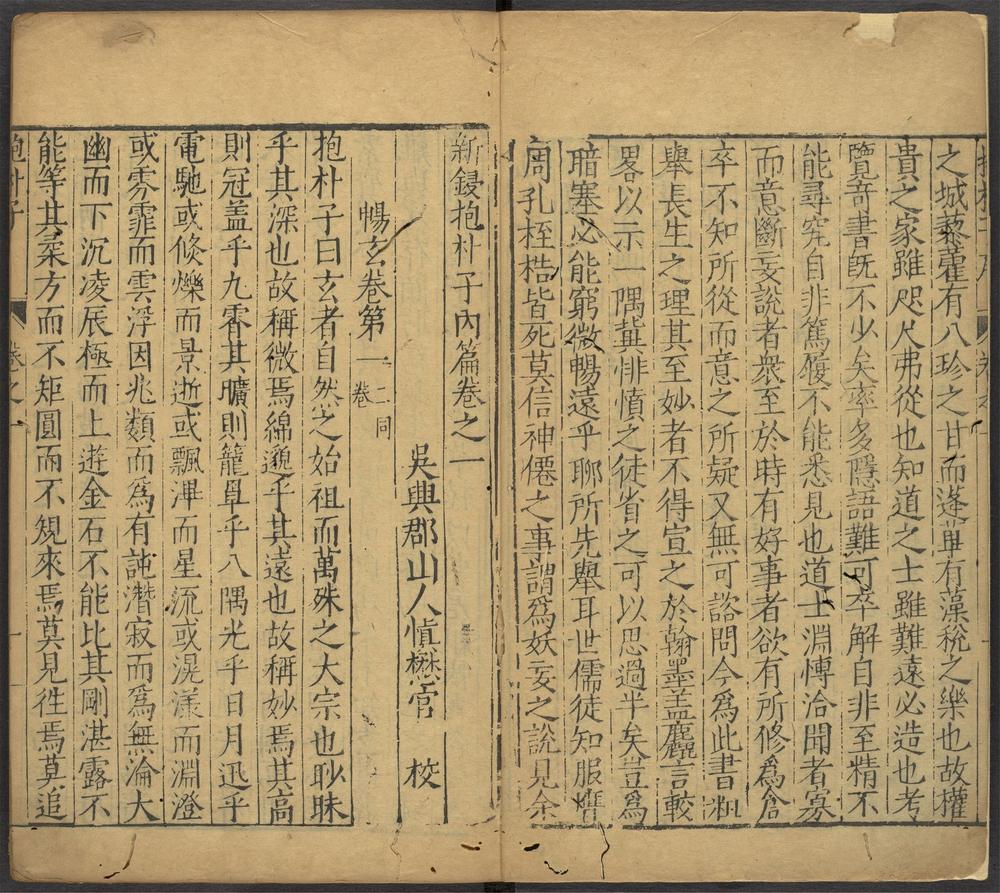 之城藜藿有八珍之甘而蓬蓽有藻梲之樂也故權
貴之家雖咫尺弗從也知道之士雖難遠必造也考
覽奇書旣不少矣率多隱語難可卒解自非至精不
能尋究自非篤履不能悉見也道士淵愽洽聞者寡
而意斷妄說者衆至於時有好事者欲有所修爲倉
卒不知所從而意之所疑又無可諮問今爲此書粗
舉長生之理其至妙者不得宣之於翰墨盖麤言較
畧以示一隅冀悱憤之徒省之可以思過半矣豈爲
暗塞必能窮微暢遠乎聊所先舉耳世儒徒知服膺
周孔桎梏皆死莫信神僊之事謂爲妖妄之說見余
新鋟抱朴子內篇卷之一
吳興郡山人愼懋官 校
暢玄卷第一 一二同卷
抱朴子曰玄者自然之始祖而萬殊之大宗也眇昧
乎其深也故稱微焉綿邈乎其遠也故稱妙焉其高
則冠盖乎九霄其曠則籠罩乎八隅光乎日月迅乎
電馳或倏爍而景逝或飄滭而星流或滉漾而淵澄
或雰霏而雲浮因兆類而爲有託潛寂而爲無淪大
幽而下沉凌辰極而上遊金石不能比其剛湛露不
能等其柔方而不矩圓而不規來焉莫見徃焉莫追
抱朴子 卷之一 一